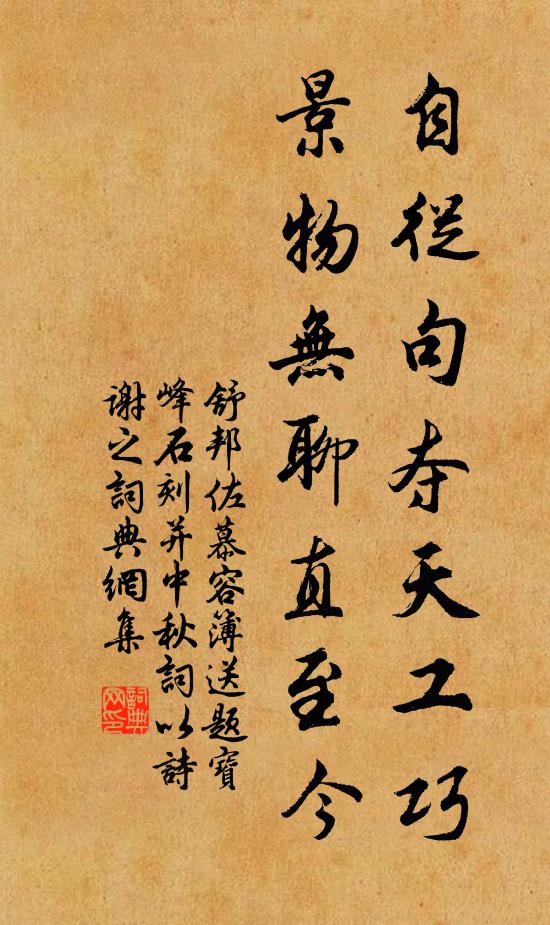 自從句夺天工巧
景物無聊直至今
舒邦佐慕容簿送題寶
峰石刻并中秋詞以詩
謝之詞典網集
詞典
网印